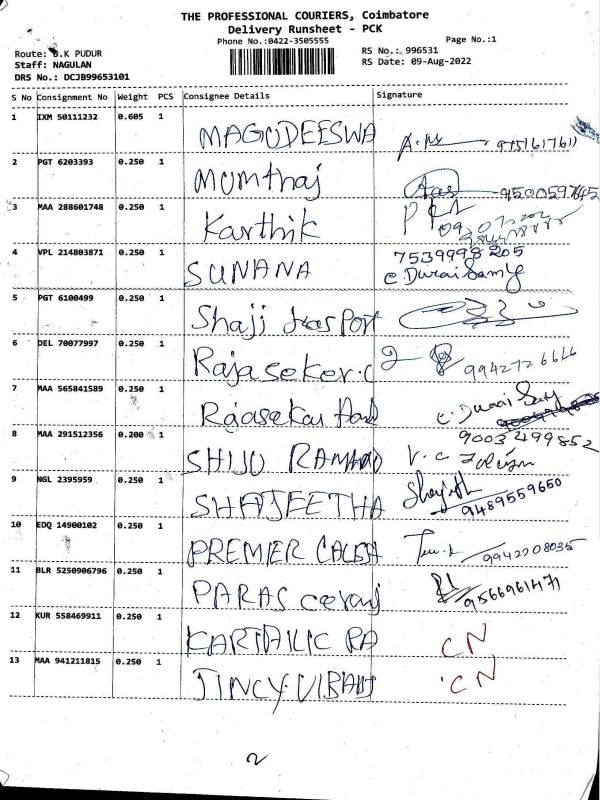 THE PROFESSIONAL COURIERS, Coimbatore
Delivery Runsheet - PCK
Phone No.:0422-3505555
Page No.:1
Route: S.K PUDUR
RS No.: 996531
Staff: NAGULAN
RS Date: 09-Aug-2022
DRS No.: DCJB99653101
S No Consignment No Weight PCS Consignee Details Signature
1 IXM 50111232 0.605 1
MAGUDEESWA 9751617611
2 PGT 6203393 0.250 1
Mumthaj
3 MAA 288601748 0.250 1
Karthik
4 VPL 214803871 0.250 1
SUNANA 7539998205
C. Durai Samy
5 PGT 6100499 0.250 1
Shaji trasport
6 DEL 70077997 0.250 1
Rajaseker.C
7 MAA 565841589 0.250 1
Rajasekar
8 MAA 291512356 0.200 1
9003499852
SHIJU
9 NGL 2395959 0.250 1
SHAJEETHA 9489559650
10 EDQ 14900102 0.250 1
PREMIER 9942208035
11 BLR 5250906796 0.250 1
PARAS 9566961471
12 KUR 558469911 0.250 1
CN
13 MAA 941211815 0.250 1
JINCY.VIBAH CN
2